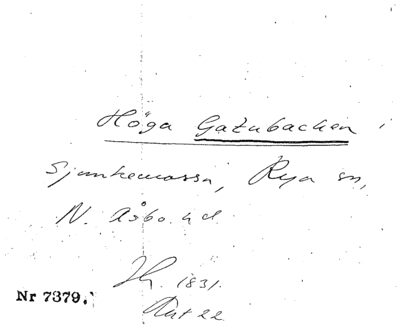 Höga Gatubacken i
Sjunkemossa, Rya sn,
N. Åsbo hd
1831.
Nr 7379.
22